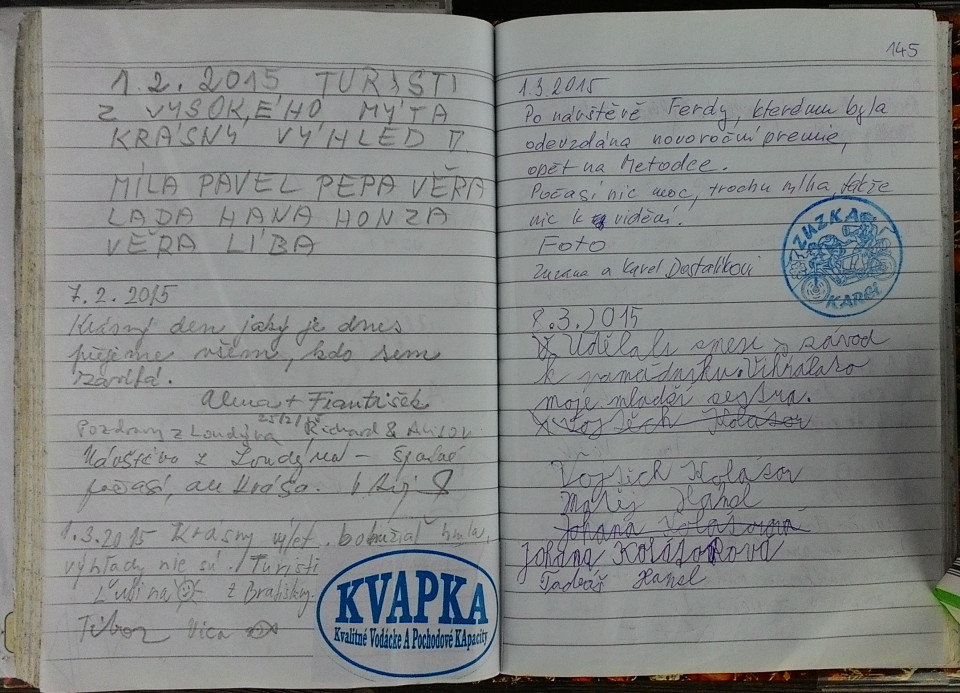 1.2.2015 TURISTI
Z VYSOKÉHO MÝTA
KRÁSNÝ VÝHLED
MÍLA PAVEL PEPA VĚRA
LÁĎA HANA HONZA
VĚRA LÍBA
7.2.2015
Krásný den jaký je dnes
přejeme všem, kdo sem
zavítá.
Alena + František
Pozdravy z Londýna 25/2/15 Richard &
Návštěva z Londýna - špatné
počasí, ale krása.
1.3.2015 Krásny výlet, bohužiaľ hmla,
výhľady nie sú. Turisti
Ľubina z Bratislavy.
Tibor Vica
KVAPKA
Kvalitné Vodácke A Pochodové KApacity
145
1.3.2015
Po návštěvě Ferdy, kterému byla
odevzdána novoroční premie,
opět na Metodce.
Počasí nic moc, trochu mlha, takže
nic k vidění.
Foto
Zuzana a Karel Dostalíkovi
ZUZKA
KAREL
8.3.2015
Udělali jsme závod
k památníku. Vyhrála
moje mladší sestra.
Vojtěch Kolásor
Matěj Hanel
Johana
Johana
Tadeáš Hanel